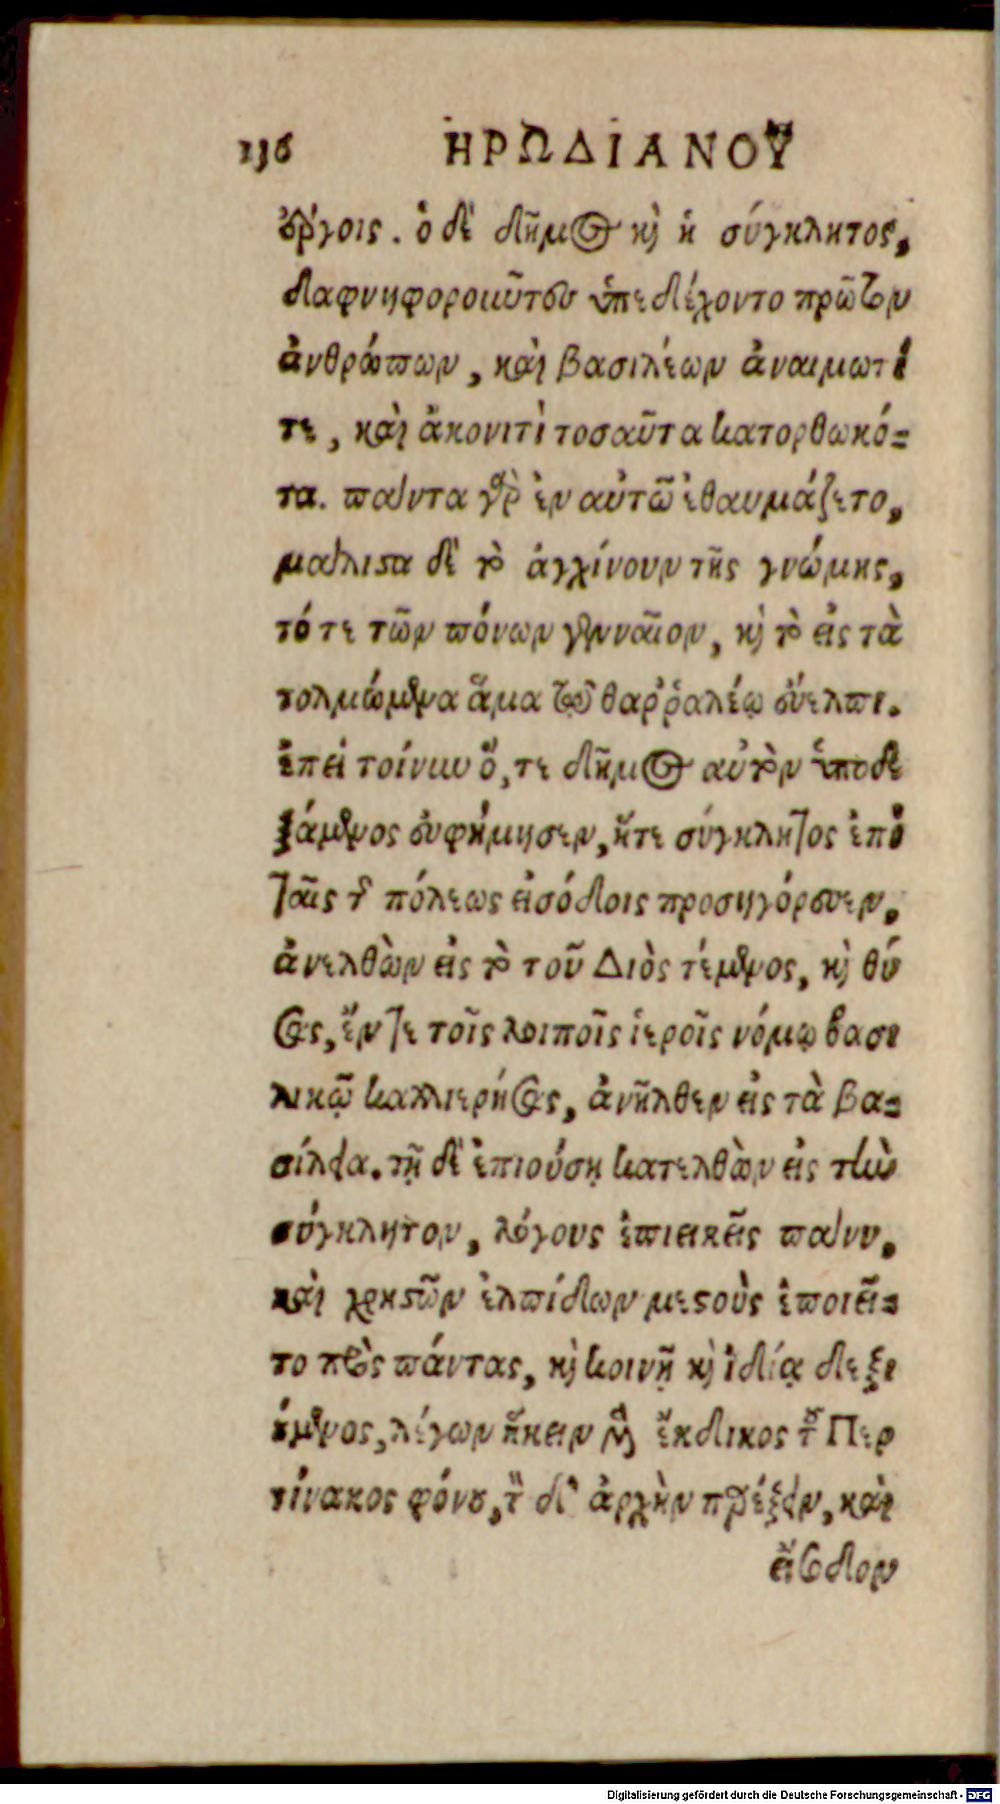 136 ΗΡΩΔΙΑΝΟΥ
ἔργοις. ὁ δὲ δῆμος κὶ ἡ σύγκλητος,
δαφνηφοροῦντες ὑπεδέχοντο πρῶτον
ἀνθρώπων, καὶ βασιλέων ἀναιμωτί
τε, καὶ ἀκονιτὶ τοσαῦτα κατορθωκό=
τα. πάντα γὰρ ἐν αὐτῶ ἐθαυμάζετο,
μάλιστα δὲ τὸ ἀγχίνουν τῆς γνώμης,
τό τε τῶν πόνων γενναῖον, κὶ τὸ εἰς τὰ
τολμώμενα ἅμα τῷ θαῤῥαλέῳ εὔελπι.
ἐπεὶ τοίνυν ὅ,τε δῆμος αὐτὸν ὑποδε
ξάμενος εὐφήμησεν, ἥτε σύγκλητος ἐπὶ
ταῖς τ πόλεως εἰσόδοις προσηγόρευεν,
ἀνελθὼν εἰς τὸ τοῦ Διὸς τέμενος, κὶ θύ
σας, ἔν τε τοῖς λοιποῖς ἱεροῖς νόμῳ βασι
λικῷ καλλιερήσας, ἀνῆλθεν εἰς τὰ βα=
σίλεια. τῇ δὲ ἐπιούσῃ κατελθὼν εἰς τὴν
σύγκλητον, λόγους ἐπιεικεῖς πάνυ,
καὶ χρηστῶν ἐλπίδων μεστοὺς ἐποιεῖ=
το πρὸς πάντας, κὶ κοινῇ κὶ ἰδίᾳ δεξι
έμενος, λέγων ἥκειν μὲν ἔκδικος τοῦ Περ
τίνακος φόνου, τ δὲ ἀρχὴν παρέξειν, καὶ
εἴσοδον
Digitalisierung gefördert durch die Deutsche Forschungsgemeinschaft - DFG